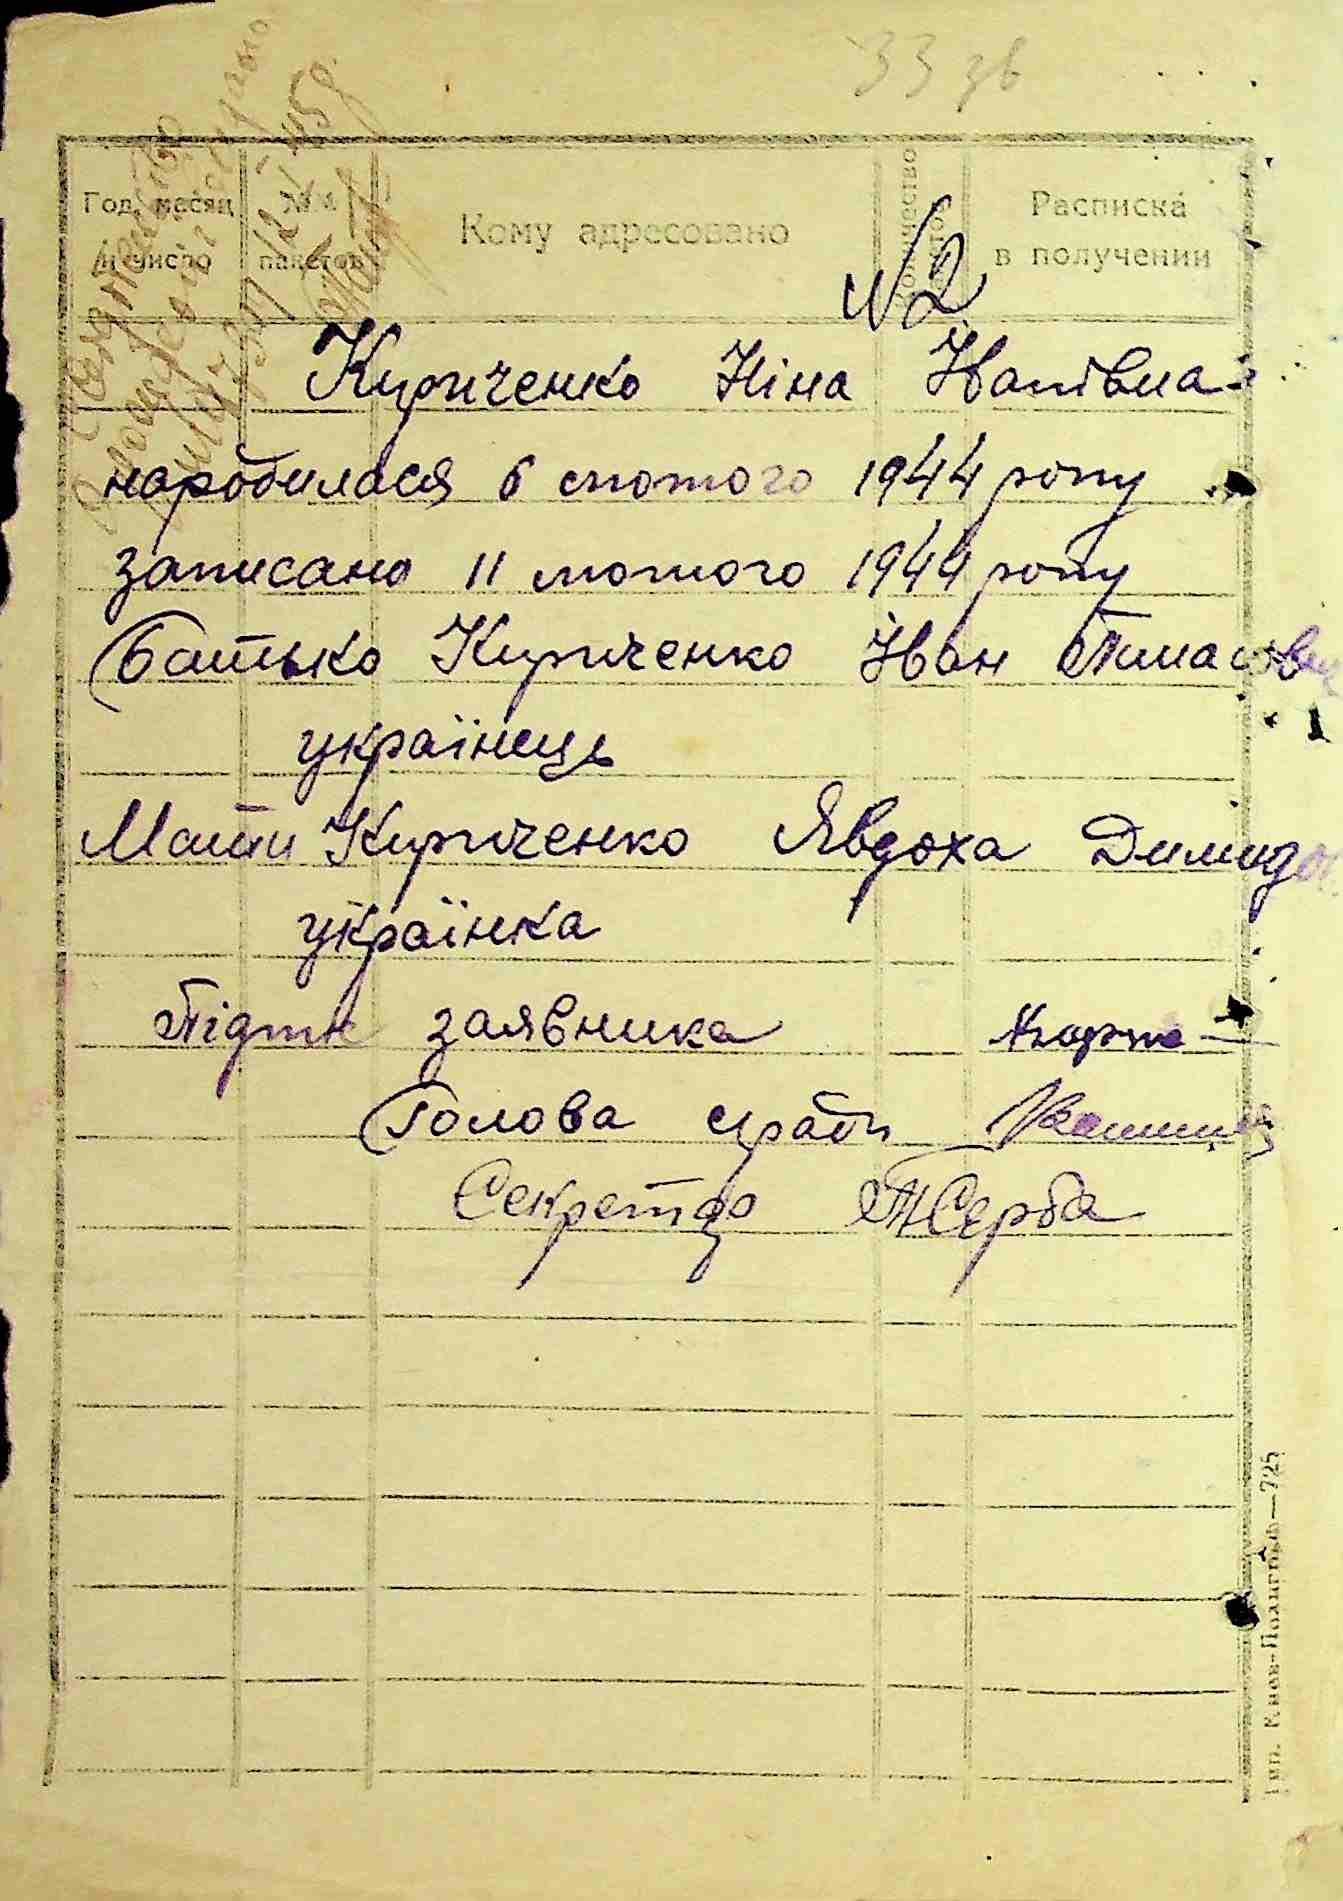 33 зв
Год, месяц и число
№№ пакетов
Кому адресовано
Расписка в получении
№ 2
Кириченко Ніна Іванівна
народилася 6 лютого 1944 року
записано 11 лютого 1944 року
Батько Кириченко Іван
українець
Мати Кириченко Явдоха Демидо
українка
Підпис заявника
Голова с/ради
Секретар Серба
Тип. Киев-Полиграф—725